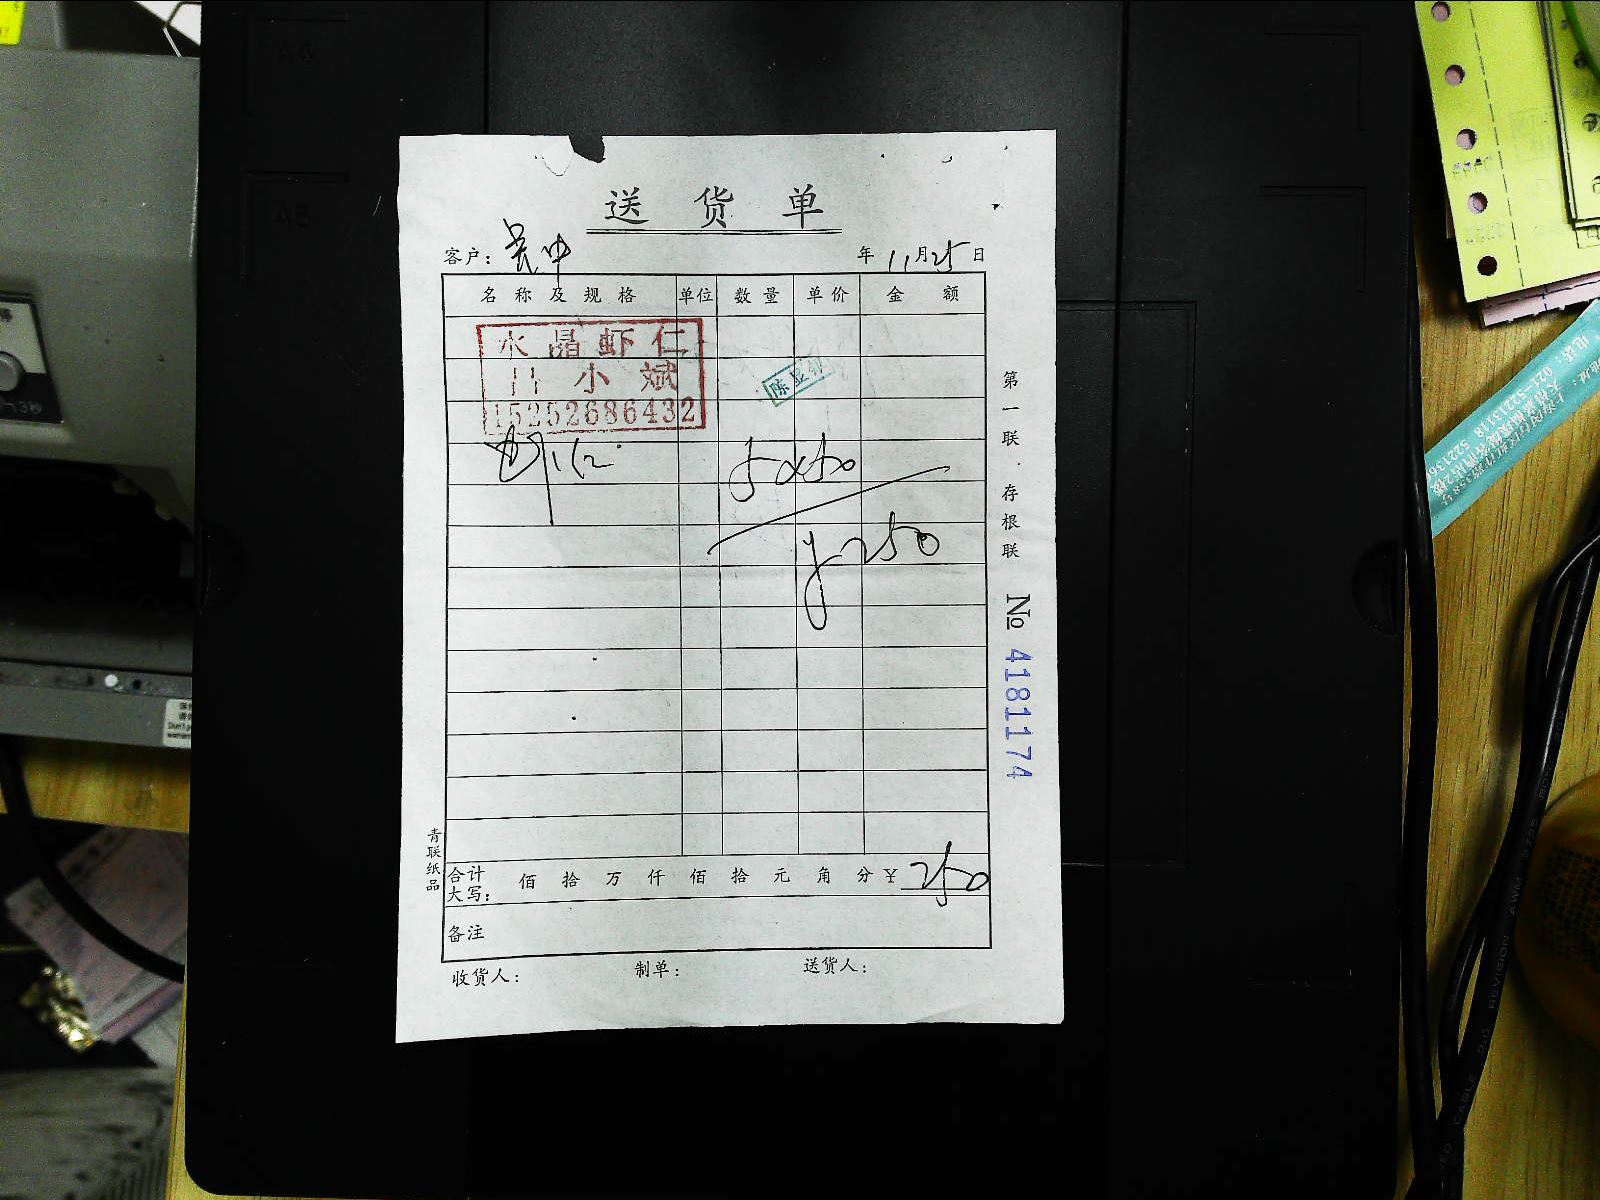 送货单
客户： 年 11月25日
名称及规格 单位 数量 单价 金额
水晶虾仁
小斌
15252686432
虾仁 5×50
¥250
合计大写： 佰 拾 万 仟 佰 拾 元 角 分 ¥ 250
备注
收货人： 制单： 送货人：
第一联·存根联
№ 4181174
青联纸品
A4
A5